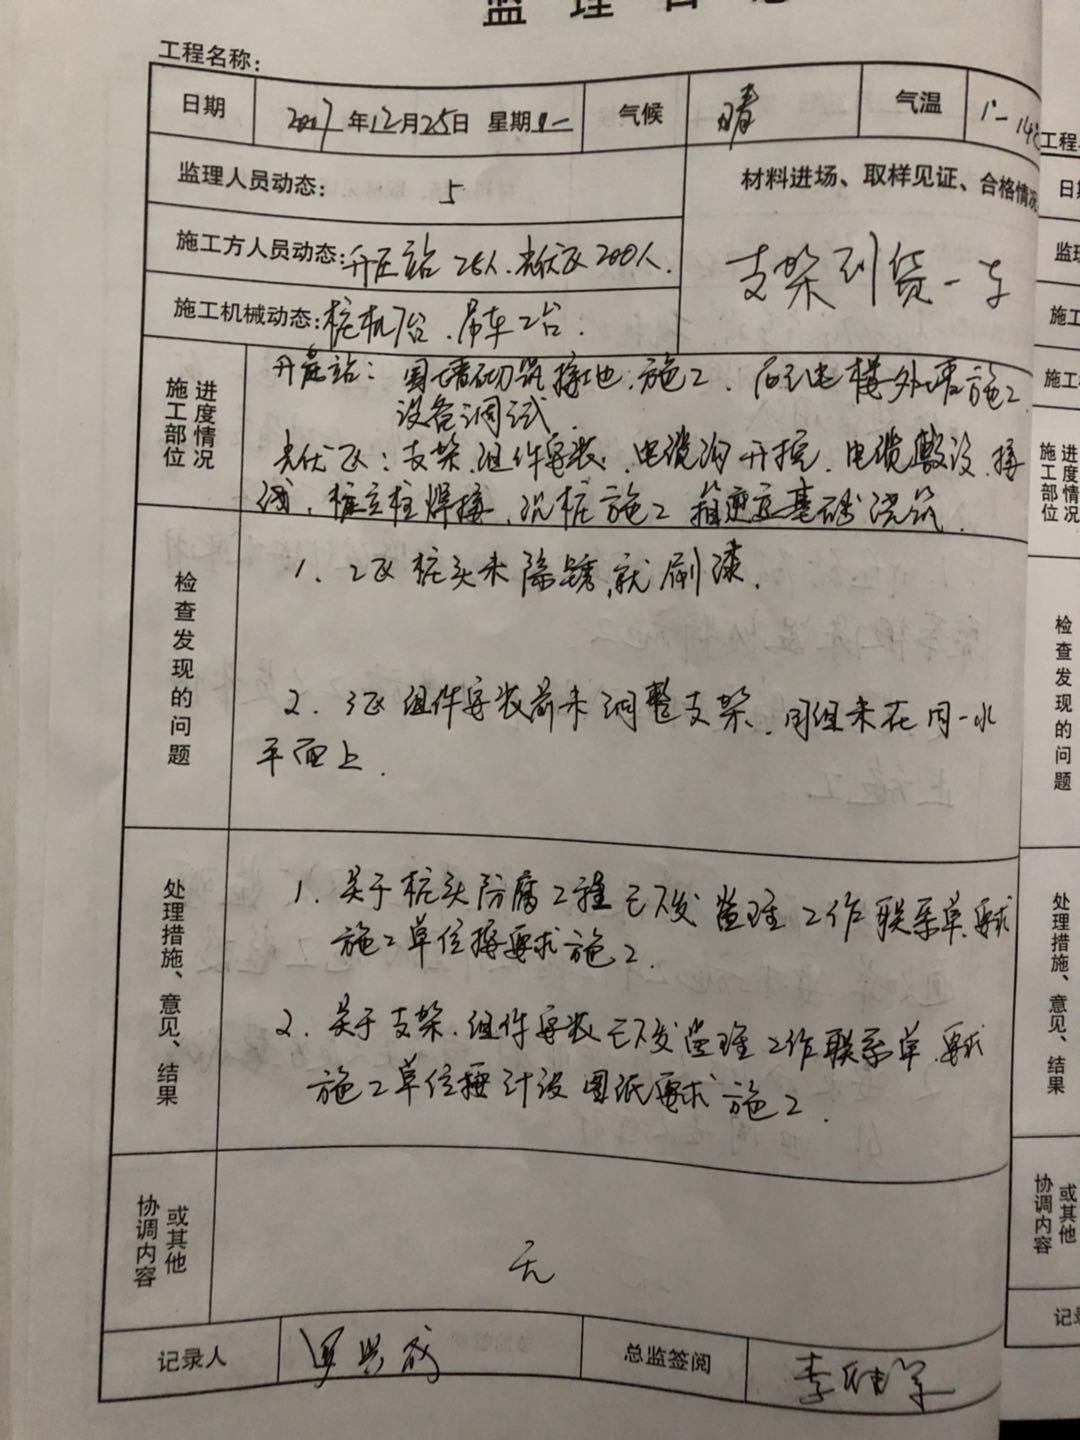 监理日志
工程名称：
日期 2017年12月25日 星期一 气候 晴 气温 1°-14℃
监理人员动态： 5
材料进场、取样见证、合格情况
施工方人员动态：升压站25人、光伏区200人.
支架到货一车
施工机械动态：桩机7台、吊车2台.
施工部位 进度情况
升压站：围墙砌筑接地施工、配电楼外墙施工
设备调试.
光伏区：支架、组件安装、电缆沟开挖、电缆敷设、接
线、桩立柱焊接、沉桩施工 箱变基础浇筑.
检查发现的问题
1、2区桩头未除锈,就刷漆.
2、3区组件安装前未调整支架、同组未在同一水
平面上.
处理措施、意见、结果
1、关于桩头防腐工程已下发监理工作联系单,要求
施工单位按要求施工.
2、关于支架、组件安装已下发监理工作联系单,要求
施工单位按设计图纸要求施工.
协调内容 或其他
无
记录人 总监签阅
工程
日
监理
施工
施工
施工部位 进度情况
检查发现的问题
处理措施、意见、结果
协调内容 或其他
记